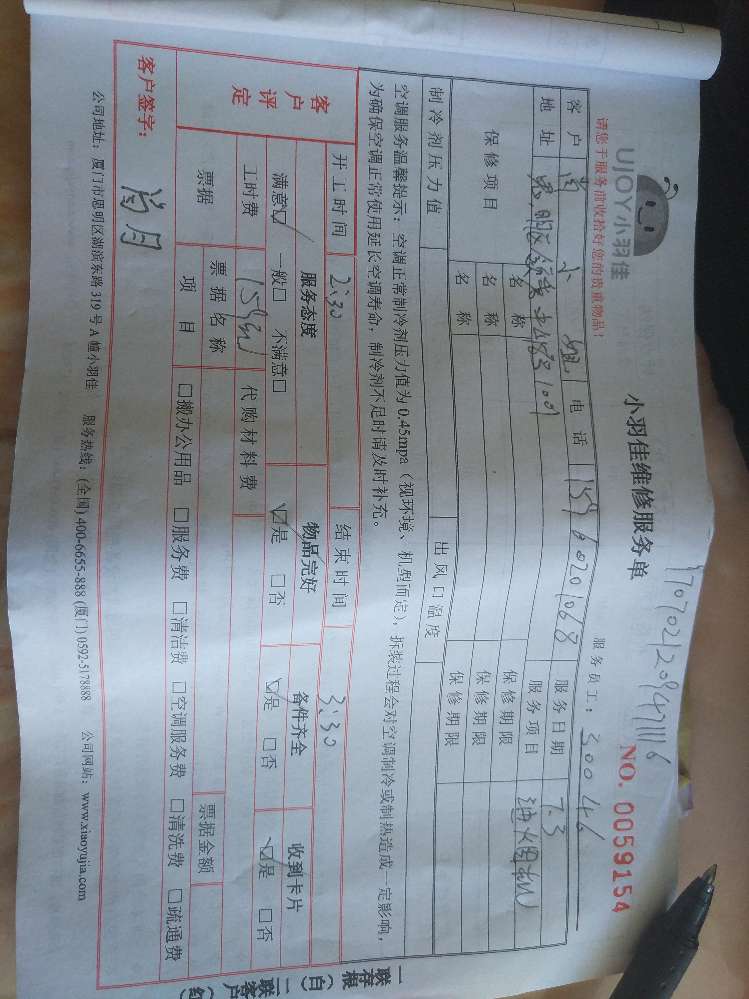 UJOY小羽佳
请您于服务前收拾好您的贵重物品！
小羽佳维修服务单
NO. 0059154
服务员工：30046
客户 肖小姐 电话 服务日期 7.3
地址 服务项目 油烟机
保修项目 名称 保修期限
名称 保修期限
名称 保修期限
制冷剂压力值 出风口温度
空调服务温馨提示：空调正常制冷剂压力值为 0.45mpa（视环境、机型而定），拆装过程会对空调制冷或制热造成一定影响，
为确保空调正常使用延长空调寿命，制冷剂不足时请及时补充。
客户评定
开工时间 2:30 结束时间 3:30
服务态度 物品完好 备件齐全 收到卡片
满意☑ 一般□ 不满意□ ☑是 □否 ☑是 □否 ☑是 □否
工时费 代购材料费
票据 票据名称 票据金额
项目 □搬办公用品 □服务费 □清洁费 □空调服务费 □清洗费 □疏通费
客户签字：肖月
公司地址：厦门市思明区湖滨东路 319 号 A 幢小羽佳 服务热线：(全国) 400-6655-888 (厦门) 0592-5178888 公司网站：www.xiaoyujia.com
一联存根（白）二联客户（红